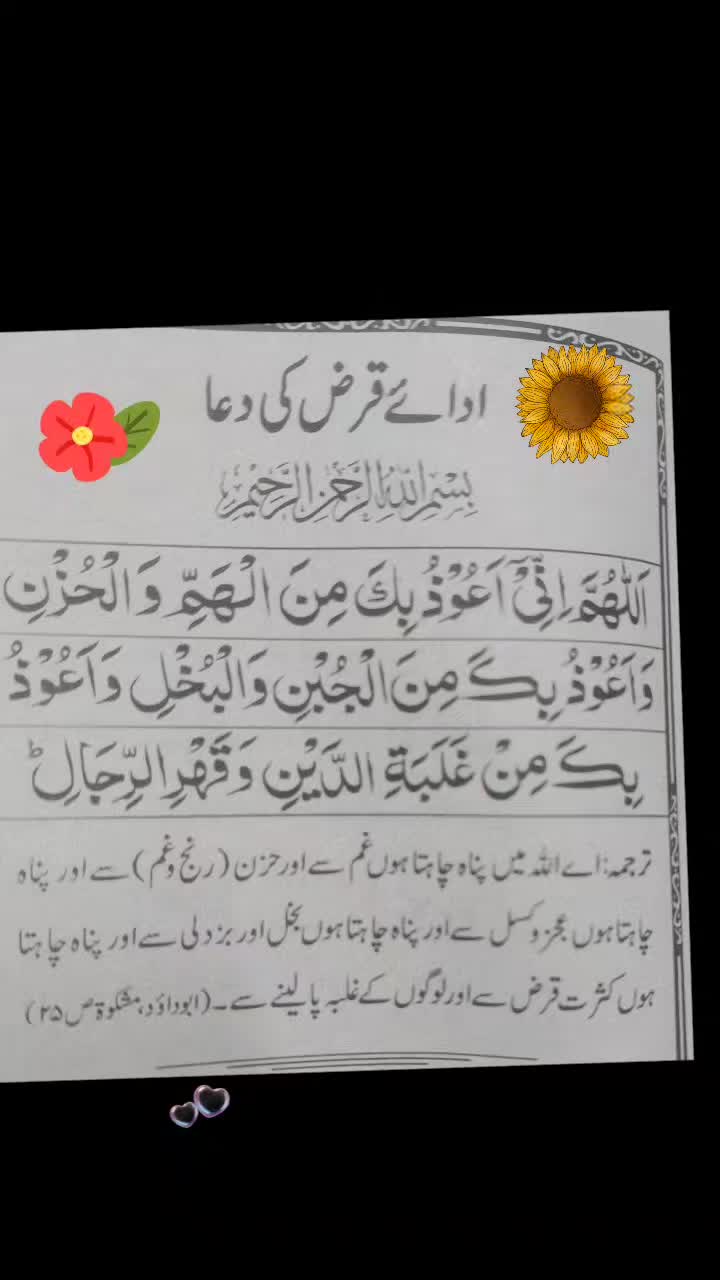 ادائے قرض کی دعا
بِسْمِ اللهِ الرَّحْمٰنِ الرَّحِيْمِ
اَللّٰهُمَّ اِنِّیْۤ اَعُوْذُ بِكَ مِنَ الْهَمِّ وَالْحُزْنِ
وَاَعُوْذُ بِكَ مِنَ الْجُبْنِ وَالْبُخْلِ وَاَعُوْذُ
بِكَ مِنْ غَلَبَةِ الدَّیْنِ وَقَهْرِ الرِّجَالِ ؕ
ترجمہ: اے اللہ میں پناہ چاہتا ہوں غم سے اور حزن (رنج و غم) سے اور پناہ
چاہتا ہوں عجز و کسل سے اور پناہ چاہتا ہوں بخل اور بزدلی سے اور پناہ چاہتا
ہوں کثرت قرض سے اور لوگوں کے غلبہ پا لینے سے۔ (ابوداؤد، مشکوۃ ص ۲۵)